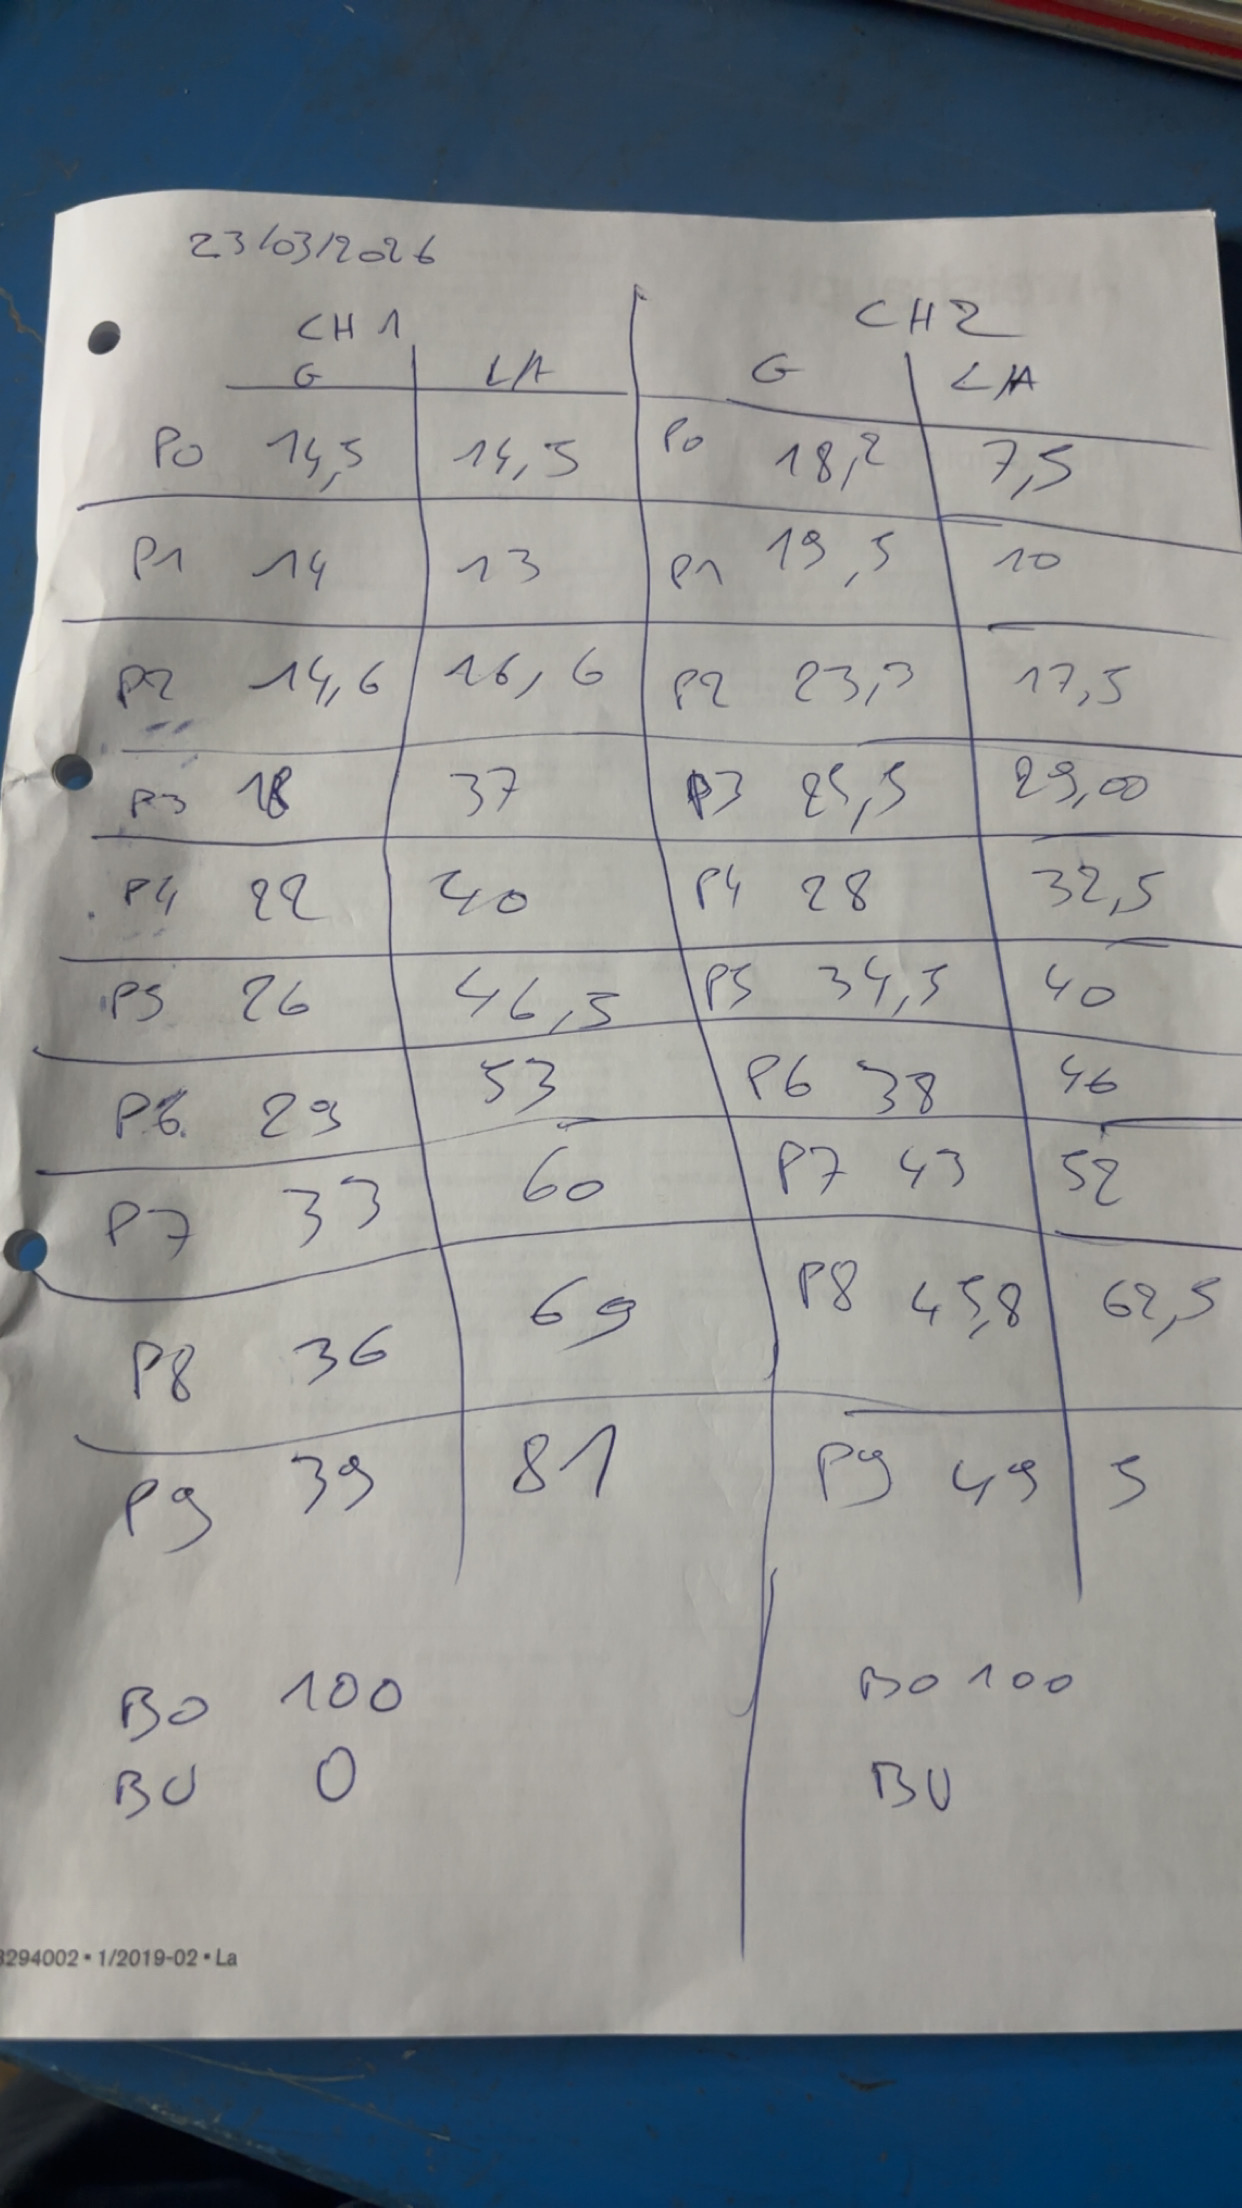 23/03/2026
CH 1 CH 2
G L/A G L/A
P0 14,5 14,5 P0 18,2 7,5
P1 14 13 P1 19,5 10
P2 14,6 16,6 P2 23,3 17,5
P3 18 37 P3 25,5 29,00
P4 22 40 P4 28 32,5
P5 26 46,5 P5 34,5 40
P6 29 53 P6 38 46
P7 33 60 P7 43 52
P8 36 69 P8 45,8 62,5
P9 39 81 P9 49 5
BO 100 BO 100
BU 0 BU
3294002 • 1/2019-02 • La